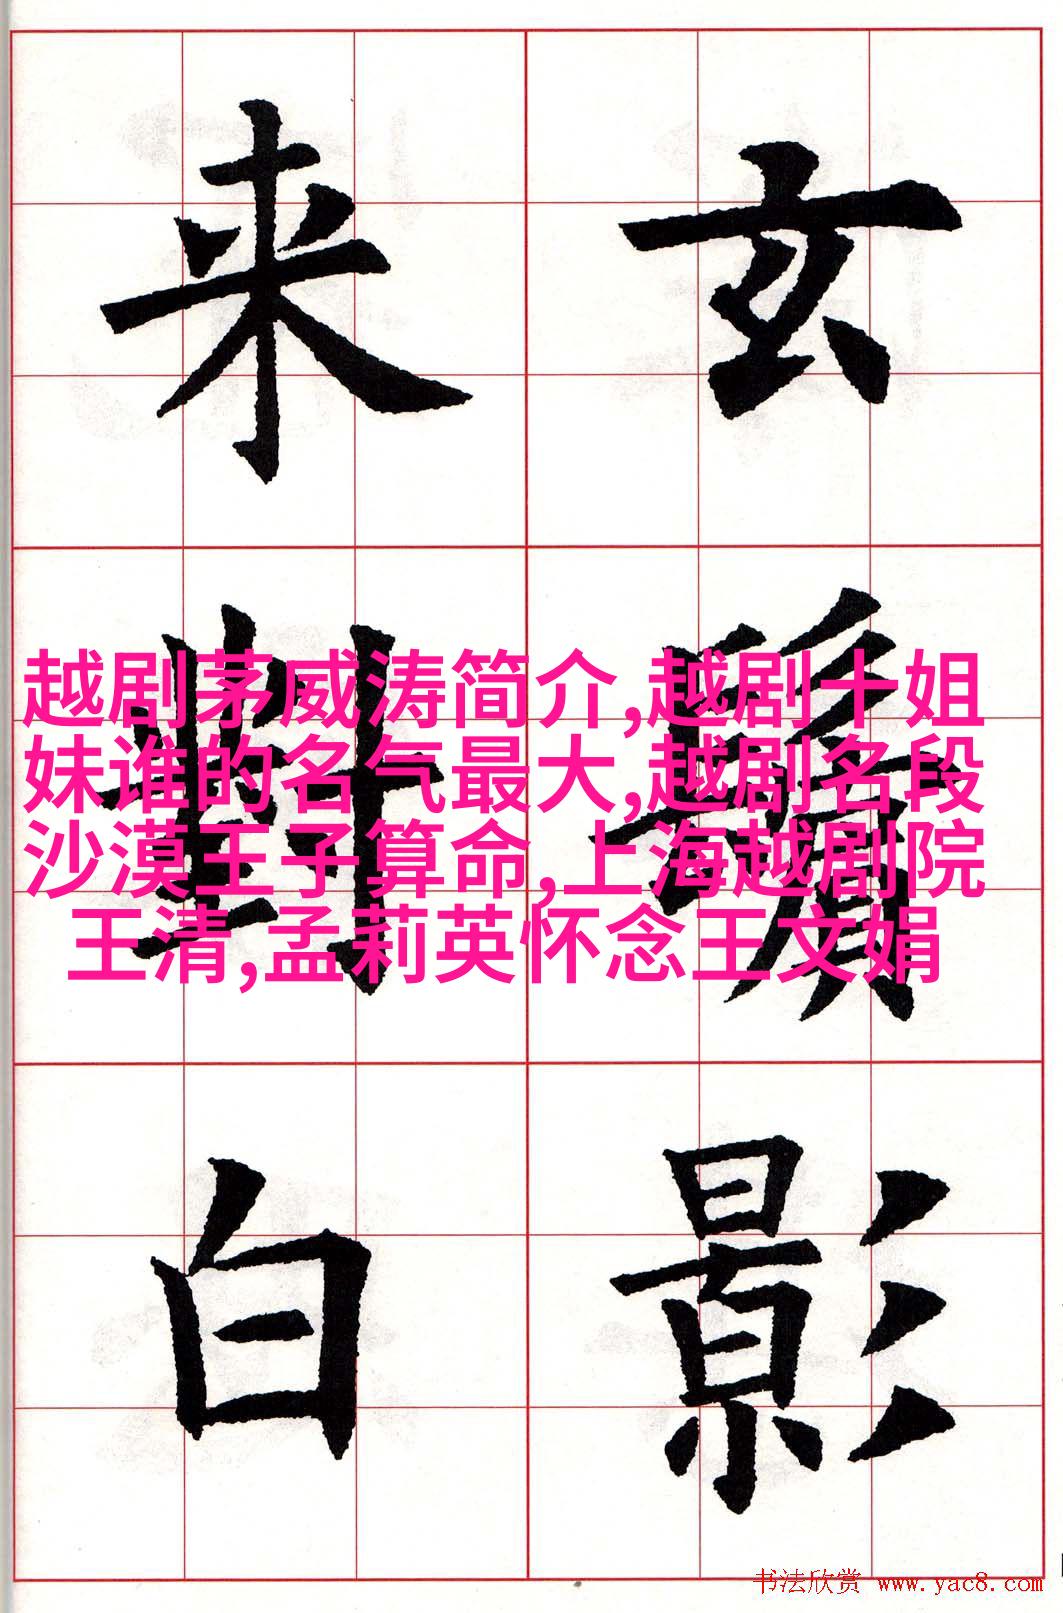 玄鬢影
来對白
越剧茅威涛简介,越剧十姐
妹谁的名气最大,越剧名段
沙漠王子算命,上海越剧院
王清,孟莉英怀念王文娟
书法欣赏 www.yac8.com